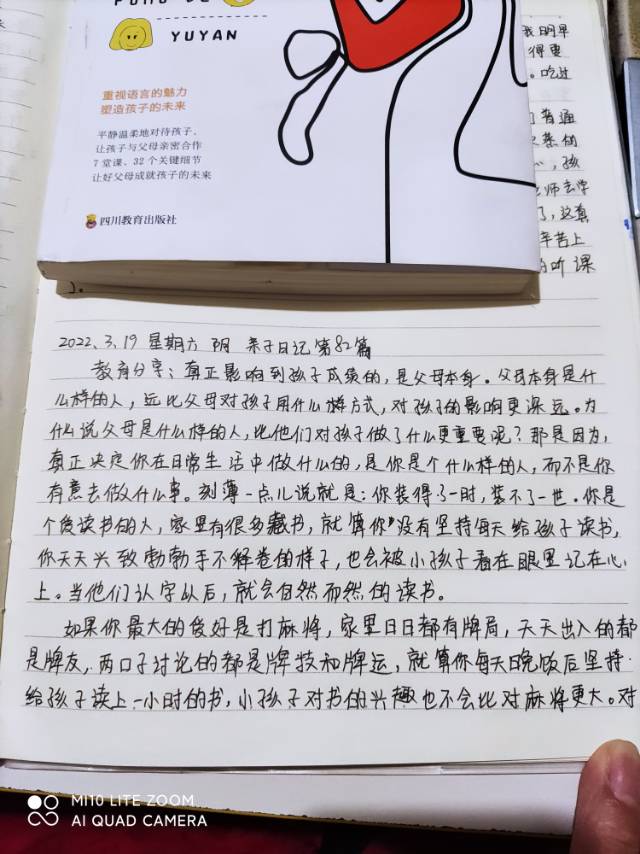 YUYAN
重视语言的魅力
塑造孩子的未来
平静温柔地对待孩子,
让孩子与父母亲密合作
7堂课、32个关键细节
让好父母成就孩子的未来
四川教育出版社
我明早
得更
。吃过
普通
孩
老师去学
了,这真
辛苦上
的听课
2022.3.19 星期六 阴 亲子日记第82篇
教育分享:真正影响到孩子成绩的,是父母本身。父母本身是什
么样的人,远比父母对孩子用什么样方式,对孩子的影响更深远。为
什么说父母是什么样的人,比他们对孩子做了什么更重要呢?那是因为,
真正决定你在日常生活中做什么的,是你是个什么样的人,而不是你
有意去做什么事。刻薄一点儿说就是:你装得了一时,装不了一世。你是
个爱读书的人,家里有很多藏书,就算你没有坚持每天给孩子读书,
你天天兴致勃勃手不释卷的样子,也会被小孩子看在眼里记在心
上。当他们认字以后,就会自然而然的读书。
如果你最大的爱好是打麻将,家里日日都有牌局,天天出入的都
是牌友,两口子讨论的都是牌技和牌运,就算你每天晚饭后坚持
给孩子读上一小时的书,小孩子对书的兴趣也不会比对麻将更大。对
MI 10 LITE ZOOM
AI QUAD CAMERA